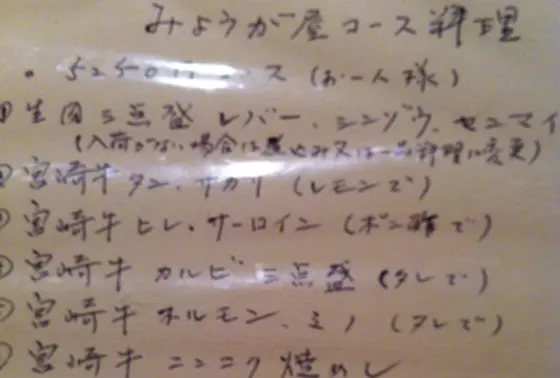 みょうが屋コース料理
・5250円コース(お一人様)
①生肉三点盛 レバー、シンゾウ、センマイ
(入荷がない場合は煮込み又は一品料理に変更)
宮崎牛 タン、サガリ (レモンで)
宮崎牛 ヒレ、サーロイン (ポン酢で)
宮崎牛 カルビ三点盛 (タレで)
宮崎牛 ホルモン、ミノ (タレで)
宮崎牛 ニンニク焼めし